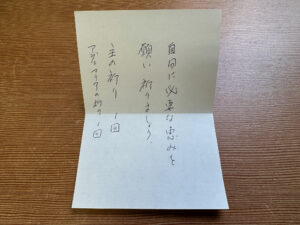 自分に必要な恵みを
願い祈りましょう。
主の祈り 1回
アヴェマリアの祈り 1回